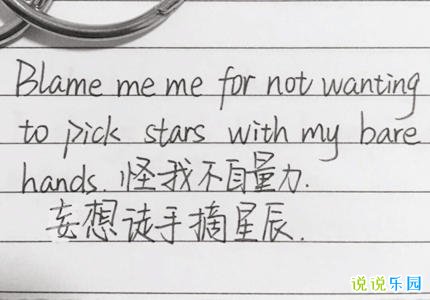 Blame me me for not wanting
to pick stars with my bare
hands. 怪我不自量力.
妄想徒手摘星辰.
说说乐园